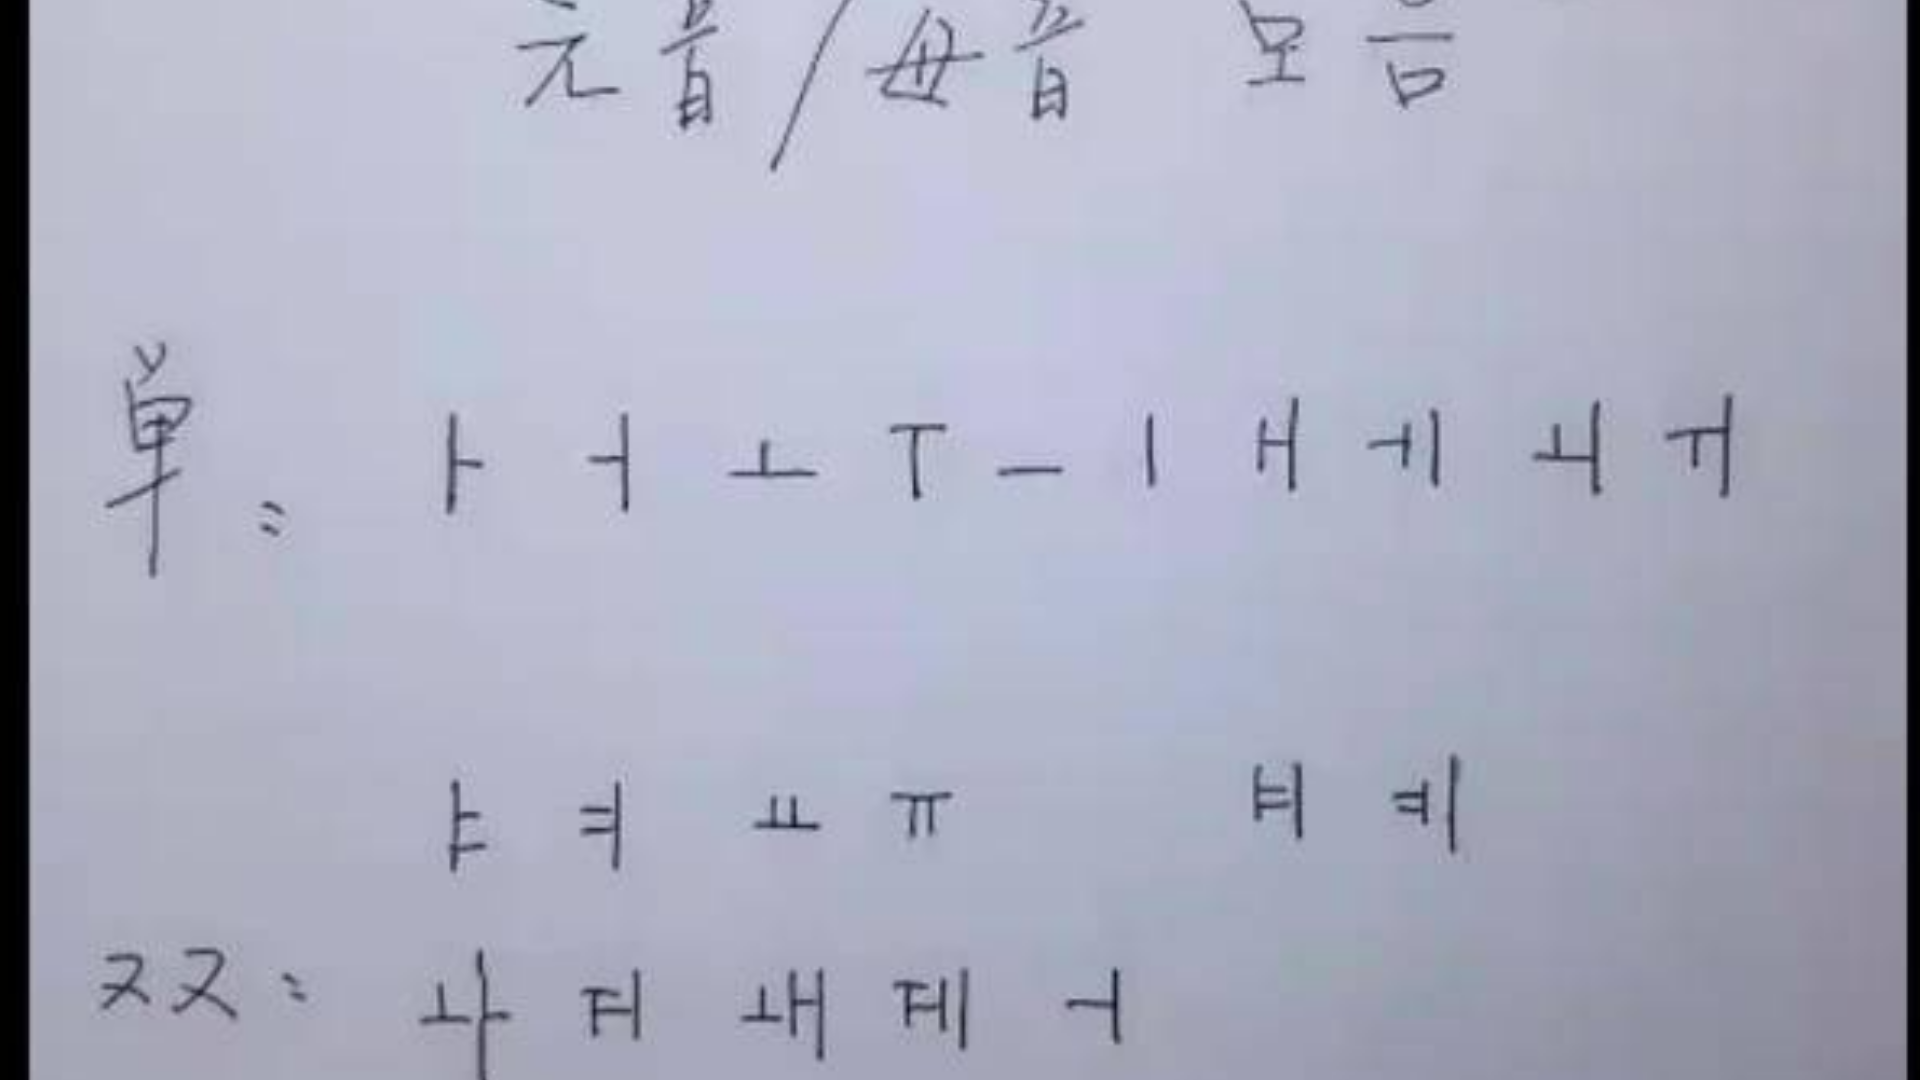 元音/母音 모음
单: ㅏ ㅓ ㅗ ㅜ ㅡ ㅣ ㅐ ㅔ ㅚ ㅟ
ㅑ ㅕ ㅛ ㅠ ㅒ ㅖ
双: ㅘ ㅝ ㅙ ㅞ ㅢ